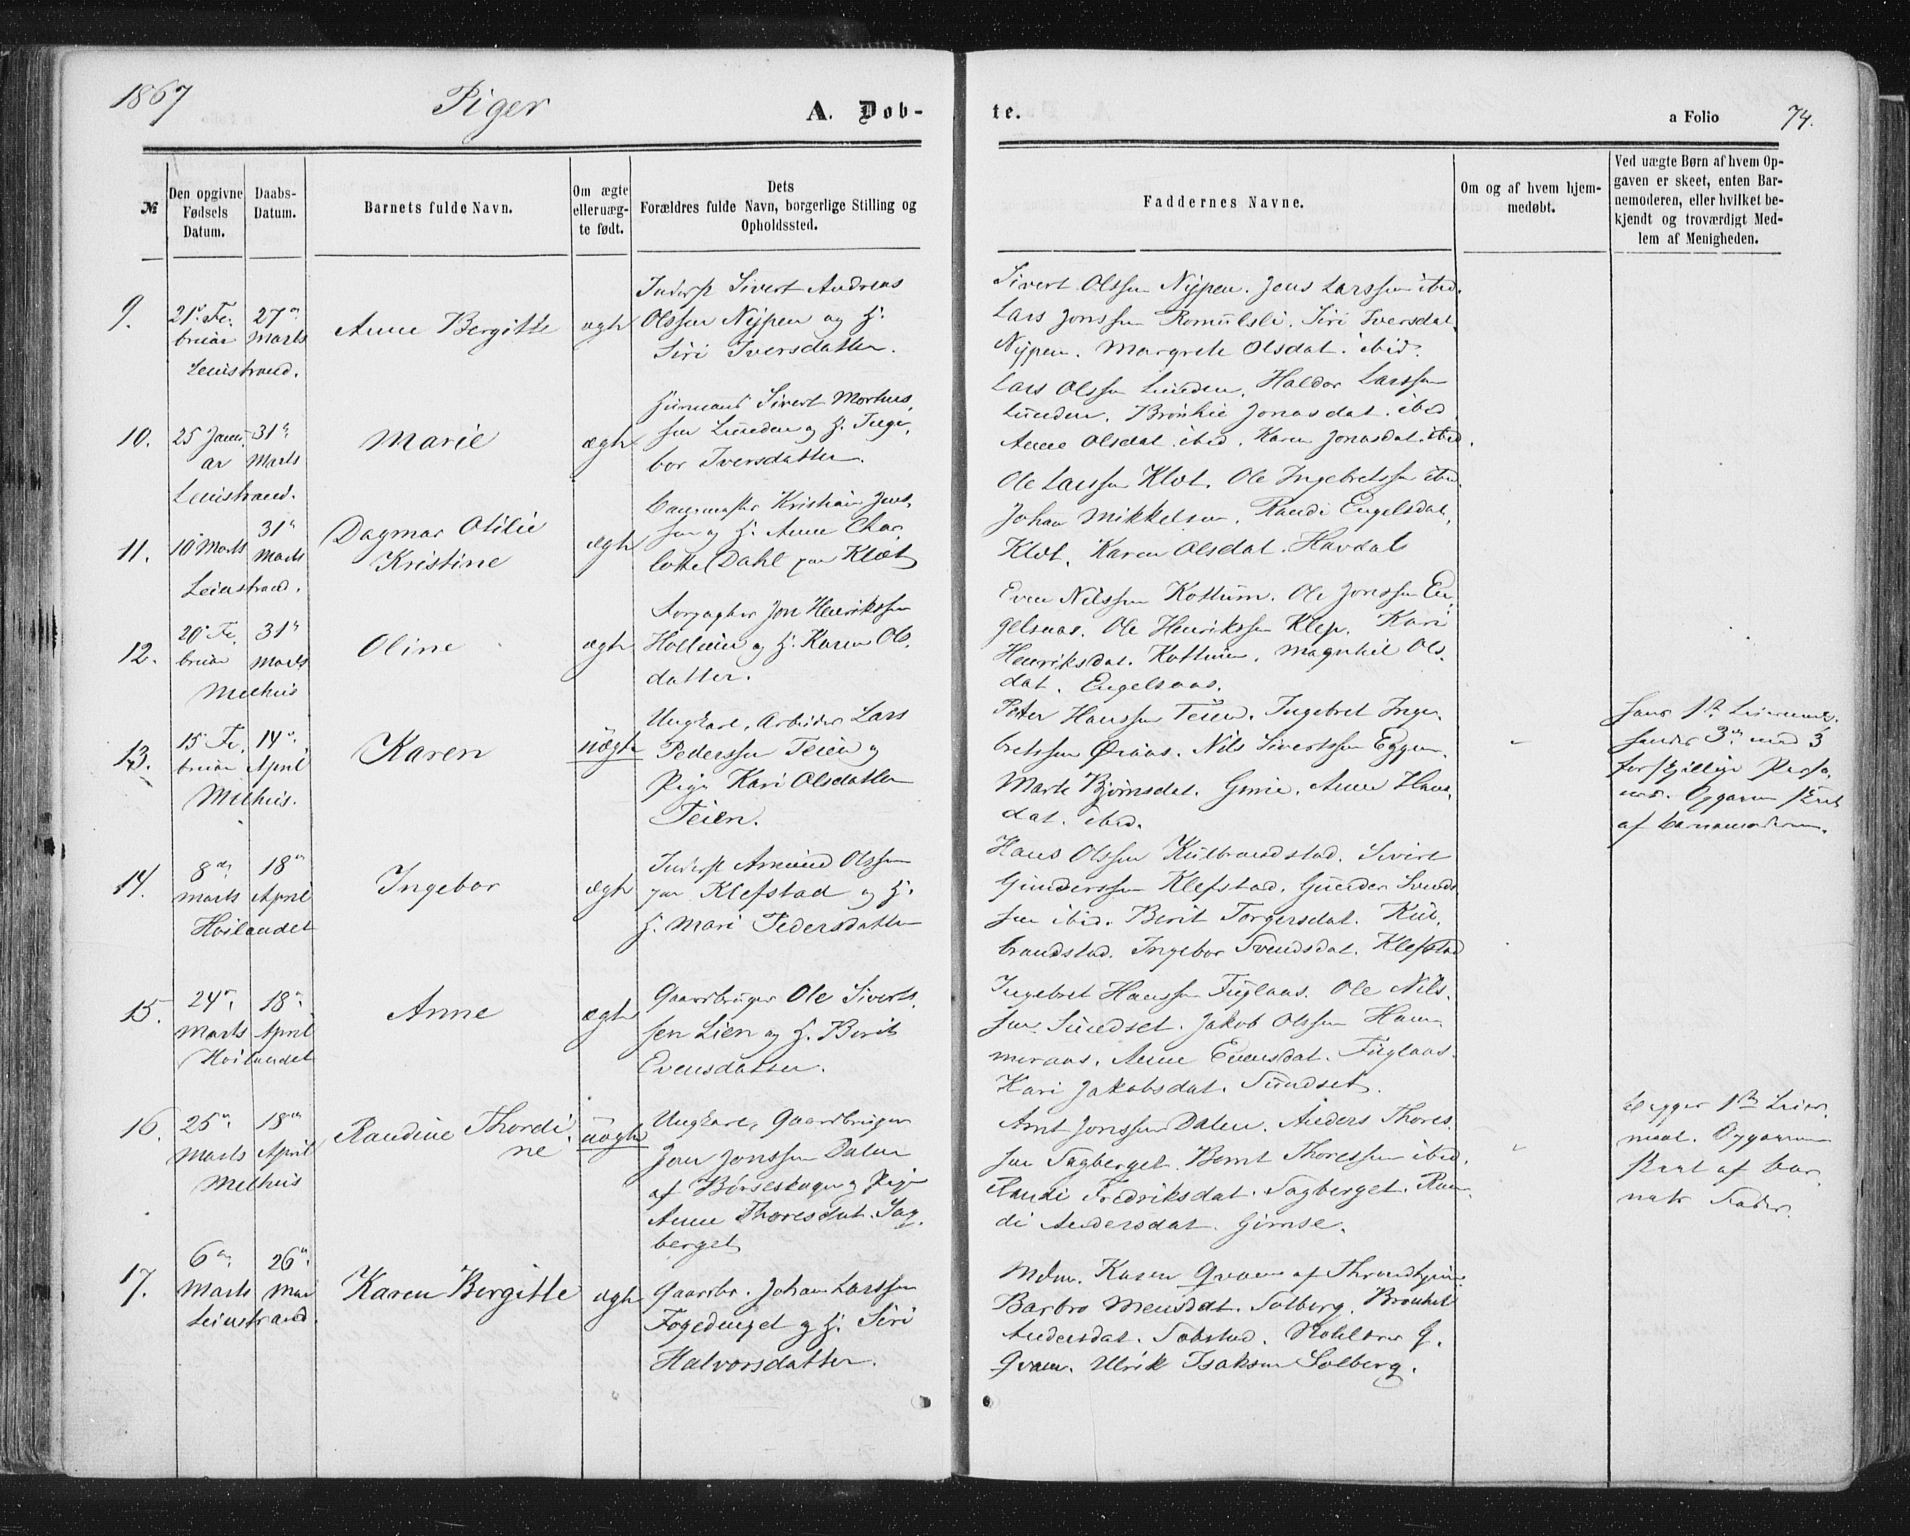 1867
Piger
A. Døb-
te.
a Folio 74.
№
Den opgivne Fødsels Datum.
Daabs-Datum.
Barnets fulde Navn.
Om ægte eller uæg-te født.
Dets Forældres fulde Navn, borgerlige Stilling og Opholdssted.
Faddernes Navne.
Om og af hvem hjem-medøbt.
Ved uægte Børn af hvem Op-gaven er skeet, enten Bar-nemoderen, eller hvilket be-kjendt og troværdigt Med-lem af Menigheden.
9.
21de Fe-
bruar
27de
Marts
Leinstrand.
Anne Bergitte
ægte
Inderst Sivert Andreas
Olssen Nypen og H.
Siri Iversdatter.
Sivert Olssen Nypen. Jens Larssen ibid.
Lars Jonssen Romulsli. Siri Iversdat.
Nypen. Margrete Olsdat. ibid.
10.
25 Janu-
ar
31te
Marts
Leinstrand.
Marie
ægte
Huusmand Sivert Morten-
sen Lunden og H. Inge-
bor Iversdatter.
Lars Olssen Lunden. Haldor Larssen
Lunden. Jonasdat. ibid
Anne Olsdat. ibid. Karen Jonasdat. ibid.
11.
10 Marts
31te
Marts
Leinstrand.
Dagmar Otilie
Kristine
ægte
Kristian Jens-
sen og H. Anne Char-
lotte Dahl paa Klæt
Ole Larssen Klæt. Ole Ingebretssen ibid.
Johan Mikkelsen. Randi Engelsdat.
Klæt. Karen Olsdat. Havdal
12.
20de Fe-
bruar
31te
Marts
Melhus
Oline
ægte
Forpagter Jon Henrikssen
og H. Karen Ols-
datter.
Even Nilssen Kottum. Ole Jonssen En-
gelsaas. Ole Henrikssen Klep. Kari
Henriksdat. Kottum. Magnhil Ols-
dat. Engelsaas.
13.
15 Fe-
bruar
14de
April
Melhus.
Karen
uægte
Ungkarl, Arbeider Lars
Pederssen Teien og
Pige Kari Olsdatter
Teien.
Peter Hanssen Teien. Ingebret Inge-
bretssen Øraas. Nils Sivertssen Eggen
Marte Bjørnsdat. Gimse. Anne Hans-
dat. ibid.
Hans 1ste Leiermaal.
hendes 3die med 3
forskjellige Perso-
ner. Opgaven skeet
af Barnemoderen.
14.
8de
Marts
18de
April
Høilandet
Ingebor
ægte
Inderst Amund Olssen
paa Klefstad og H.
H. Mari Pedersdatter
Hans Olssen Kulbrandstad. Sivert
Gunderssen Klefstad. Gunder Svends-
sen ibid. Berit Torgersdat. Kul-
brandstad. Ingebor Svendsdat. Klefstad
15.
24de
Marts
18de
April
Høilandet
Anne
ægte
Gaardbruger Ole Siverts-
sen Lien og H. Berit
Evensdatter.
Ingebret Hanssen Fuglaas. Ole Nils-
sen Sundset. Jakob Olssen Ham-
meraas. Anne Evensdat. Fuglaas.
Kari Jakobsdat. Sundset.
16.
25de
Marts
18de
April
Melhus
Randine Thordi-
ne
uægte
Ungkarl, Gaardbruger
Jon Jonssen Dalen
af Børseskogn og Pige
Anne Thoresdat. Sag-
berget
Arnt Jonssen Dalen. Anders Thores-
sen Sagberget. Bernt Thoressen ibid.
Randi Fredriksdat. Sagberget. Ran-
di Andersdat. Gimse.
Begges 1ste Leier-
maal. Opgaven
skeet af Bar-
nets Fader.
17.
6te
Marts
26de
Mai
Leinstrand.
Karen Bergitte
ægte
Gaardbr. Johan Larssen
Fogedenget og H. Siri
Halvorsdatter.
Mdm. Karen Qvam af Throndhjem.
Barbro Mensdat. Solberg.
Andersdat. Solstad.
Qvam. Ulrik Isaksen Solberg.